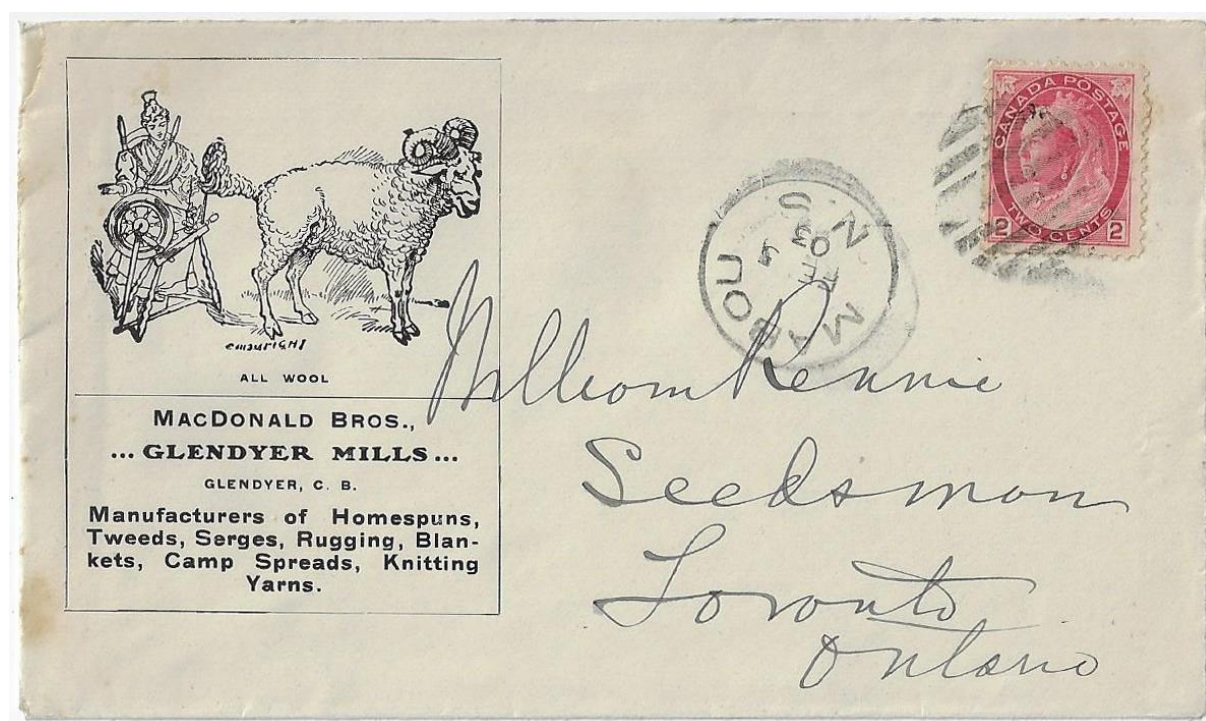 COPYRIGHT
ALL WOOL
MACDONALD BROS.,
... GLENDYER MILLS ...
GLENDYER, C. B.
Manufacturers of Homespuns,
Tweeds, Serges, Rugging, Blan-
kets, Camp Spreads, Knitting
Yarns.
CANADA POSTAGE
TWO CENTS
2 2
MABOU
N S
FE
03
William Rennie
Seedsman
Toronto
Ontario